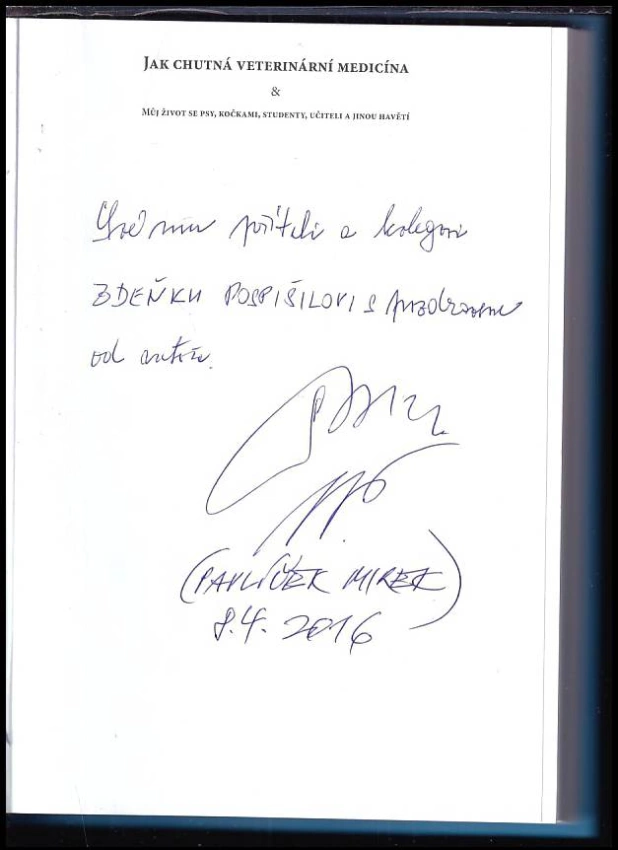 JAK CHUTNÁ VETERINÁRNÍ MEDICÍNA
&
MŮJ ŽIVOT SE PSY, KOČKAMI, STUDENTY, UČITELI A JINOU HAVĚTÍ
Svému příteli a kolegovi
ZDEŇKU POSPIŠILOVI s pozdravem
od autora.
(PAVLÍČEK MIREK)
8.4. 2016